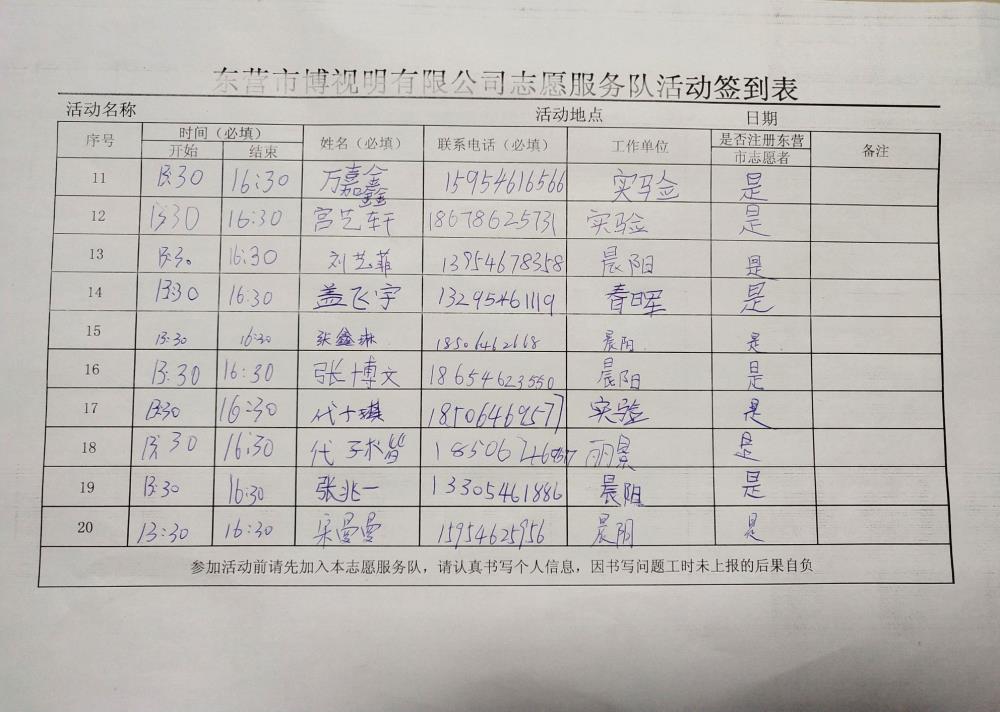 东营市博视明有限公司志愿服务队活动签到表
活动名称 活动地点 日期
序号 时间（必填） 姓名（必填） 联系电话（必填） 工作单位 是否注册东营 备注
开始 结束 市志愿者
11 13:30 16:30 万嘉鑫 15954616566 实验 是
12 13:30 16:30 宫艺轩 18678625731 实验 是
13 13:30 16:30 刘艺菲 13954678358 晨阳 是
14 13:30 16:30 盖飞宇 13295461119 春晖 是
15 13:30 16:30 张鑫琳 18506462668 晨阳 是
16 13:30 16:30 张博文 18654623550 晨阳 是
17 13:30 16:30 代子琪 18506469577 实验 是
18 13:30 16:30 代子 丽景 是
19 13:30 16:30 张兆一 13305461886 晨阳 是
20 13:30 16:30 宋曼曼 15954625956 晨阳 是
参加活动前请先加入本志愿服务队，请认真书写个人信息，因书写问题工时未上报的后果自负